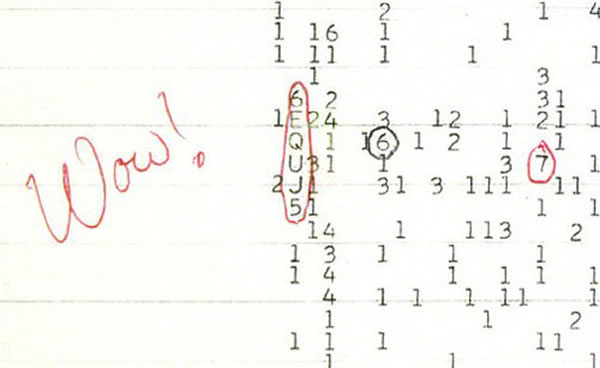 1 2 1 4
1 16 1 1
1 11 1 1 1
1 3
6 2 31
1 E 24 3 12 1 21 1
Q 1 16 1 2 1 1
Wow! U 31 1 3 7 1
2 J 1 31 3 111 11
5 1 1 1
14 1 113 2
1 3 1 1 1
1 4 1 1 1 1
4 1 1 1 11 1
1 1 2
1 1 1 1 11
1 1 1